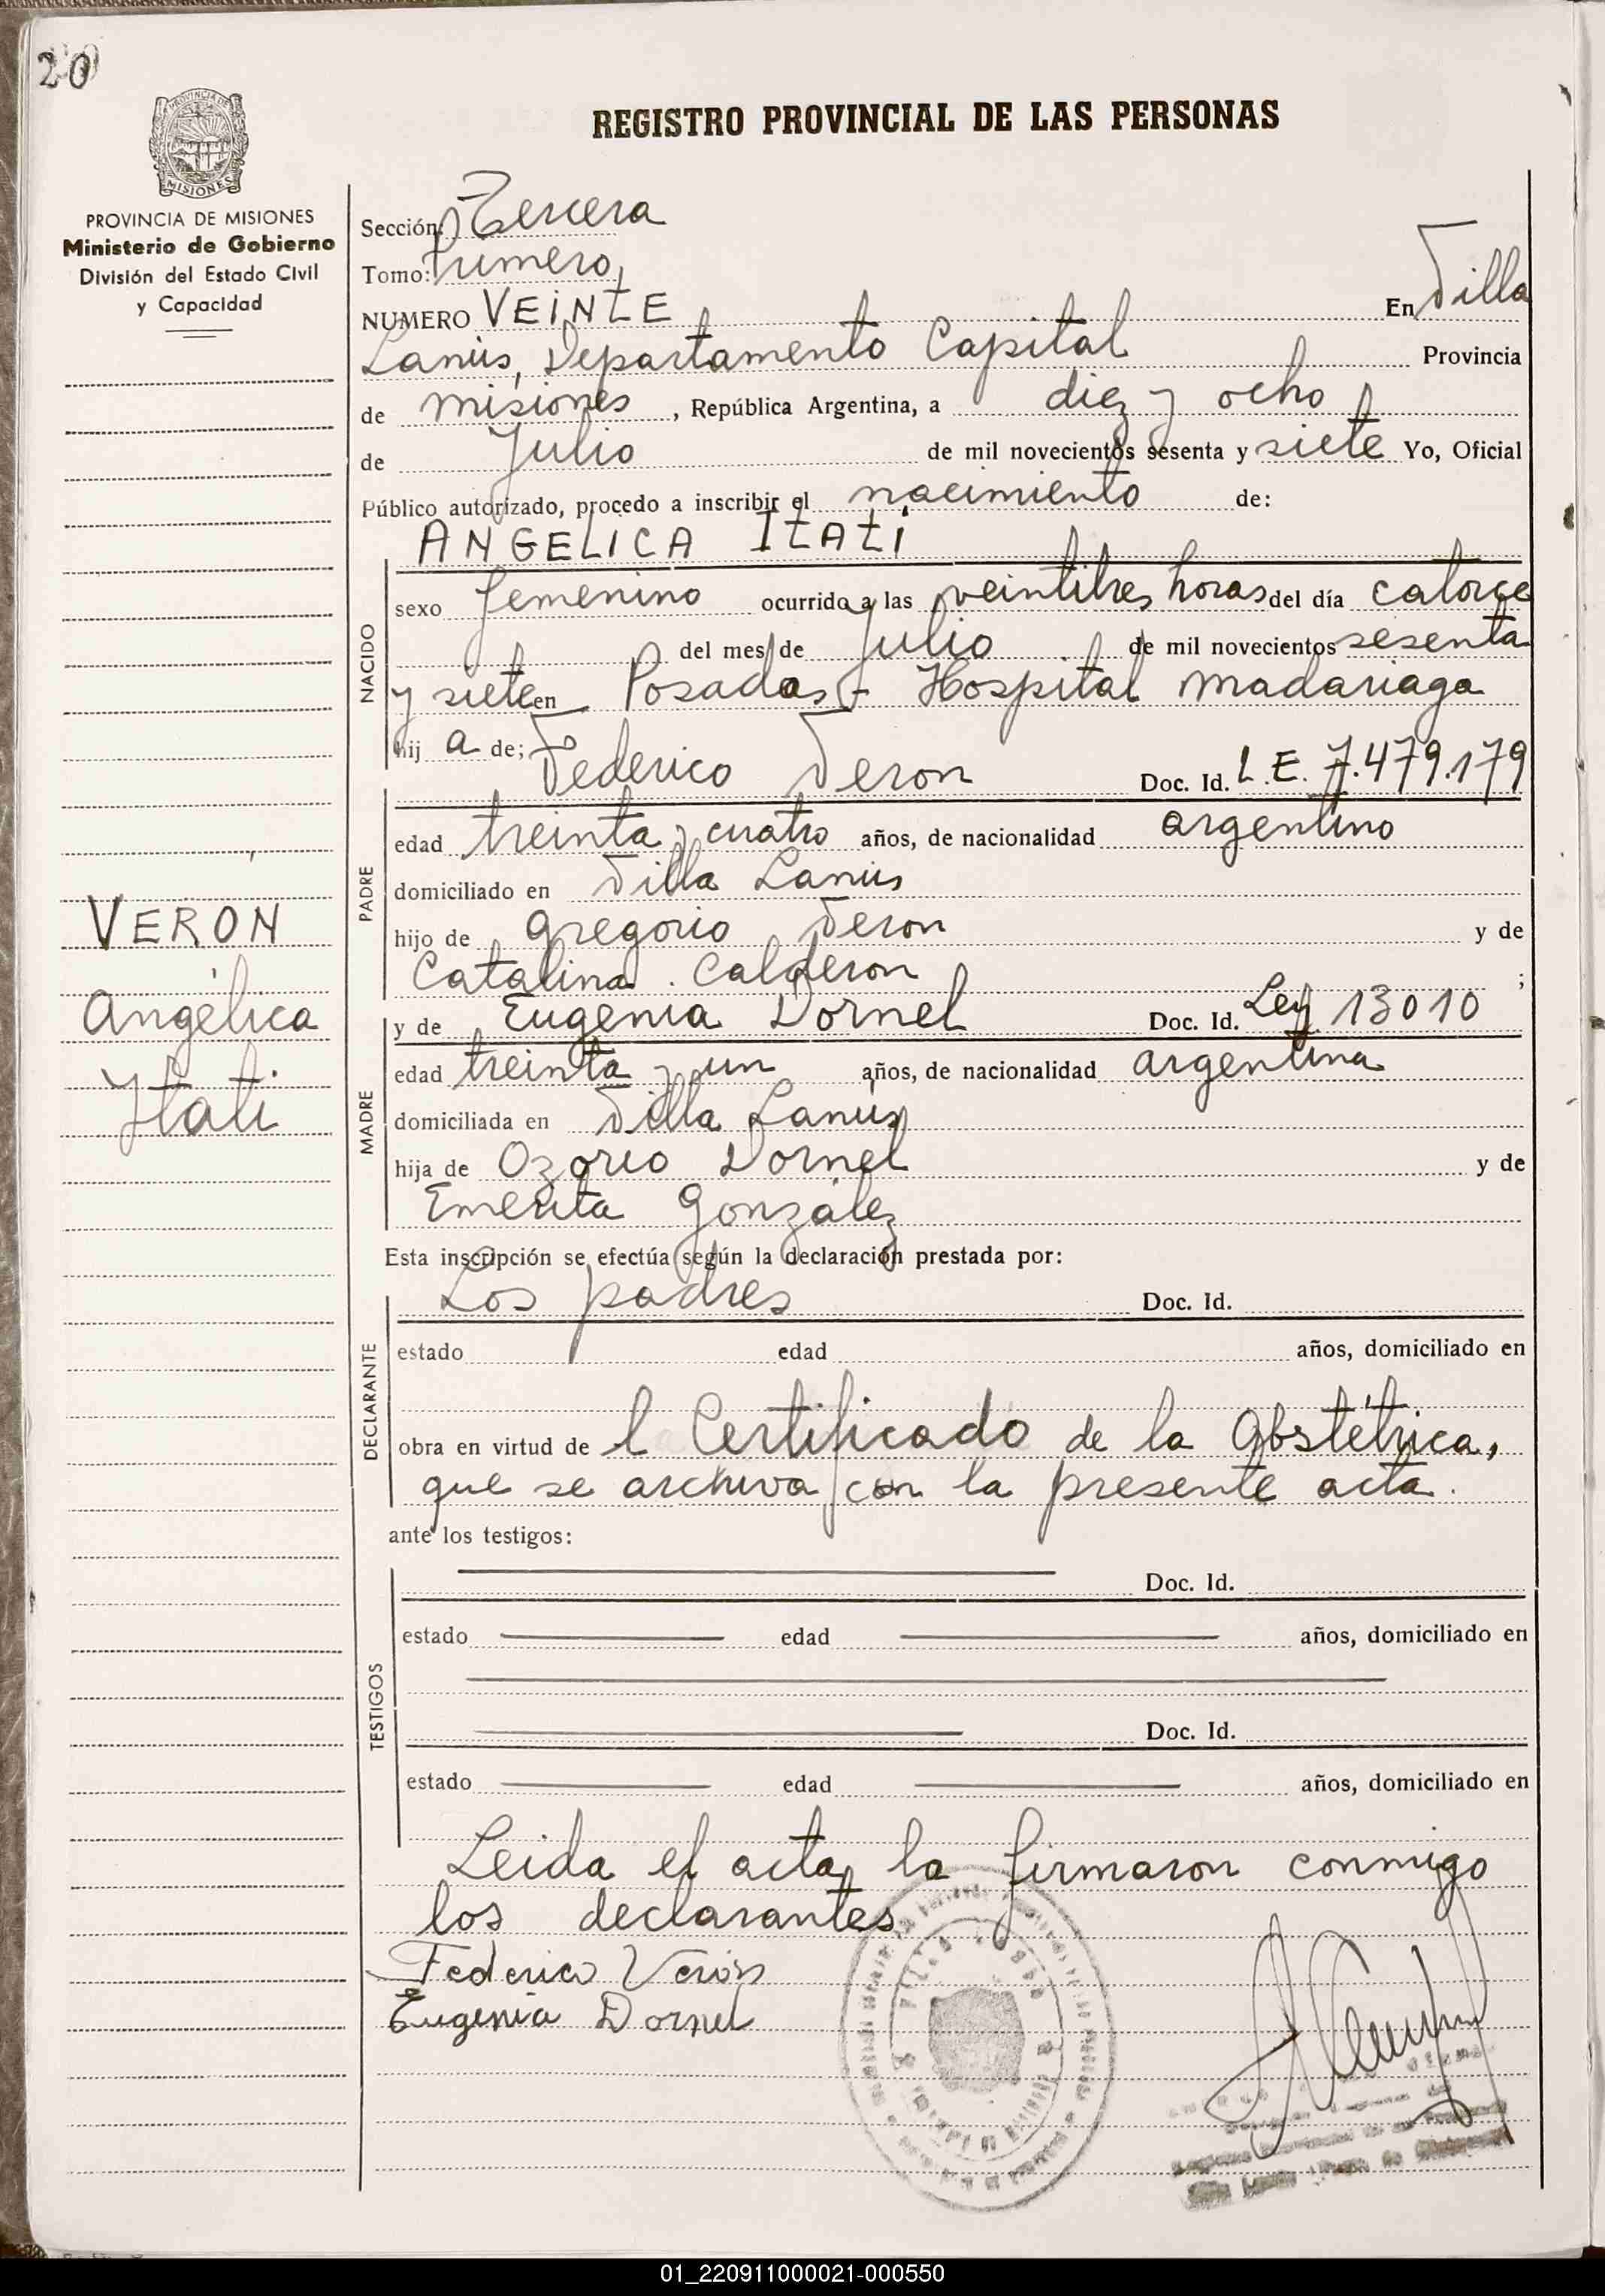 20
REGISTRO PROVINCIAL DE LAS PERSONAS
PROVINCIA DE MISIONES
MISIONES
PROVINCIA DE MISIONES
Ministerio de Gobierno
División del Estado Civil
y Capacidad
VERON
Angélica
Itati
Sección: Tercera
Tomo: Primero
NUMERO VEINTE En Villa
Lanús, Departamento Capital Provincia
de Misiones, República Argentina, a diez y ocho
de Julio de mil novecientos sesenta y siete Yo, Oficial
Público autorizado, procedo a inscribir el nacimiento de:
ANGELICA ITATI
NACIDO
sexo femenino ocurrido a las veintitres horas del día catorce
del mes de Julio de mil novecientos sesenta
y siete en Posadas - Hospital Madariaga
hij a de; Federico Veron Doc. Id. L.E. 7.479.179
PADRE
edad treinta y cuatro años, de nacionalidad argentino
domiciliado en Villa Lanús
hijo de Gregorio Veron y de
Catalina Calderon ;
y de Eugenia Dornel Doc. Id. Ley 13010
MADRE
edad treinta y un años, de nacionalidad argentina
domiciliada en Villa Lanús
hija de Ozorio Dornel y de
Emerita González
Esta inscripción se efectúa según la declaración prestada por:
Los padres Doc. Id.
DECLARANTE
estado edad años, domiciliado en
obra en virtud de l Certificado de la Obstétrica,
que se archiva con la presente acta.
ante los testigos:
TESTIGOS
Doc. Id.
estado edad años, domiciliado en
Doc. Id.
estado edad años, domiciliado en
Leida el acta, la firmaron conmigo
los declarantes
Federico Verón
Eugenia Dornel
01_220911000021-000550